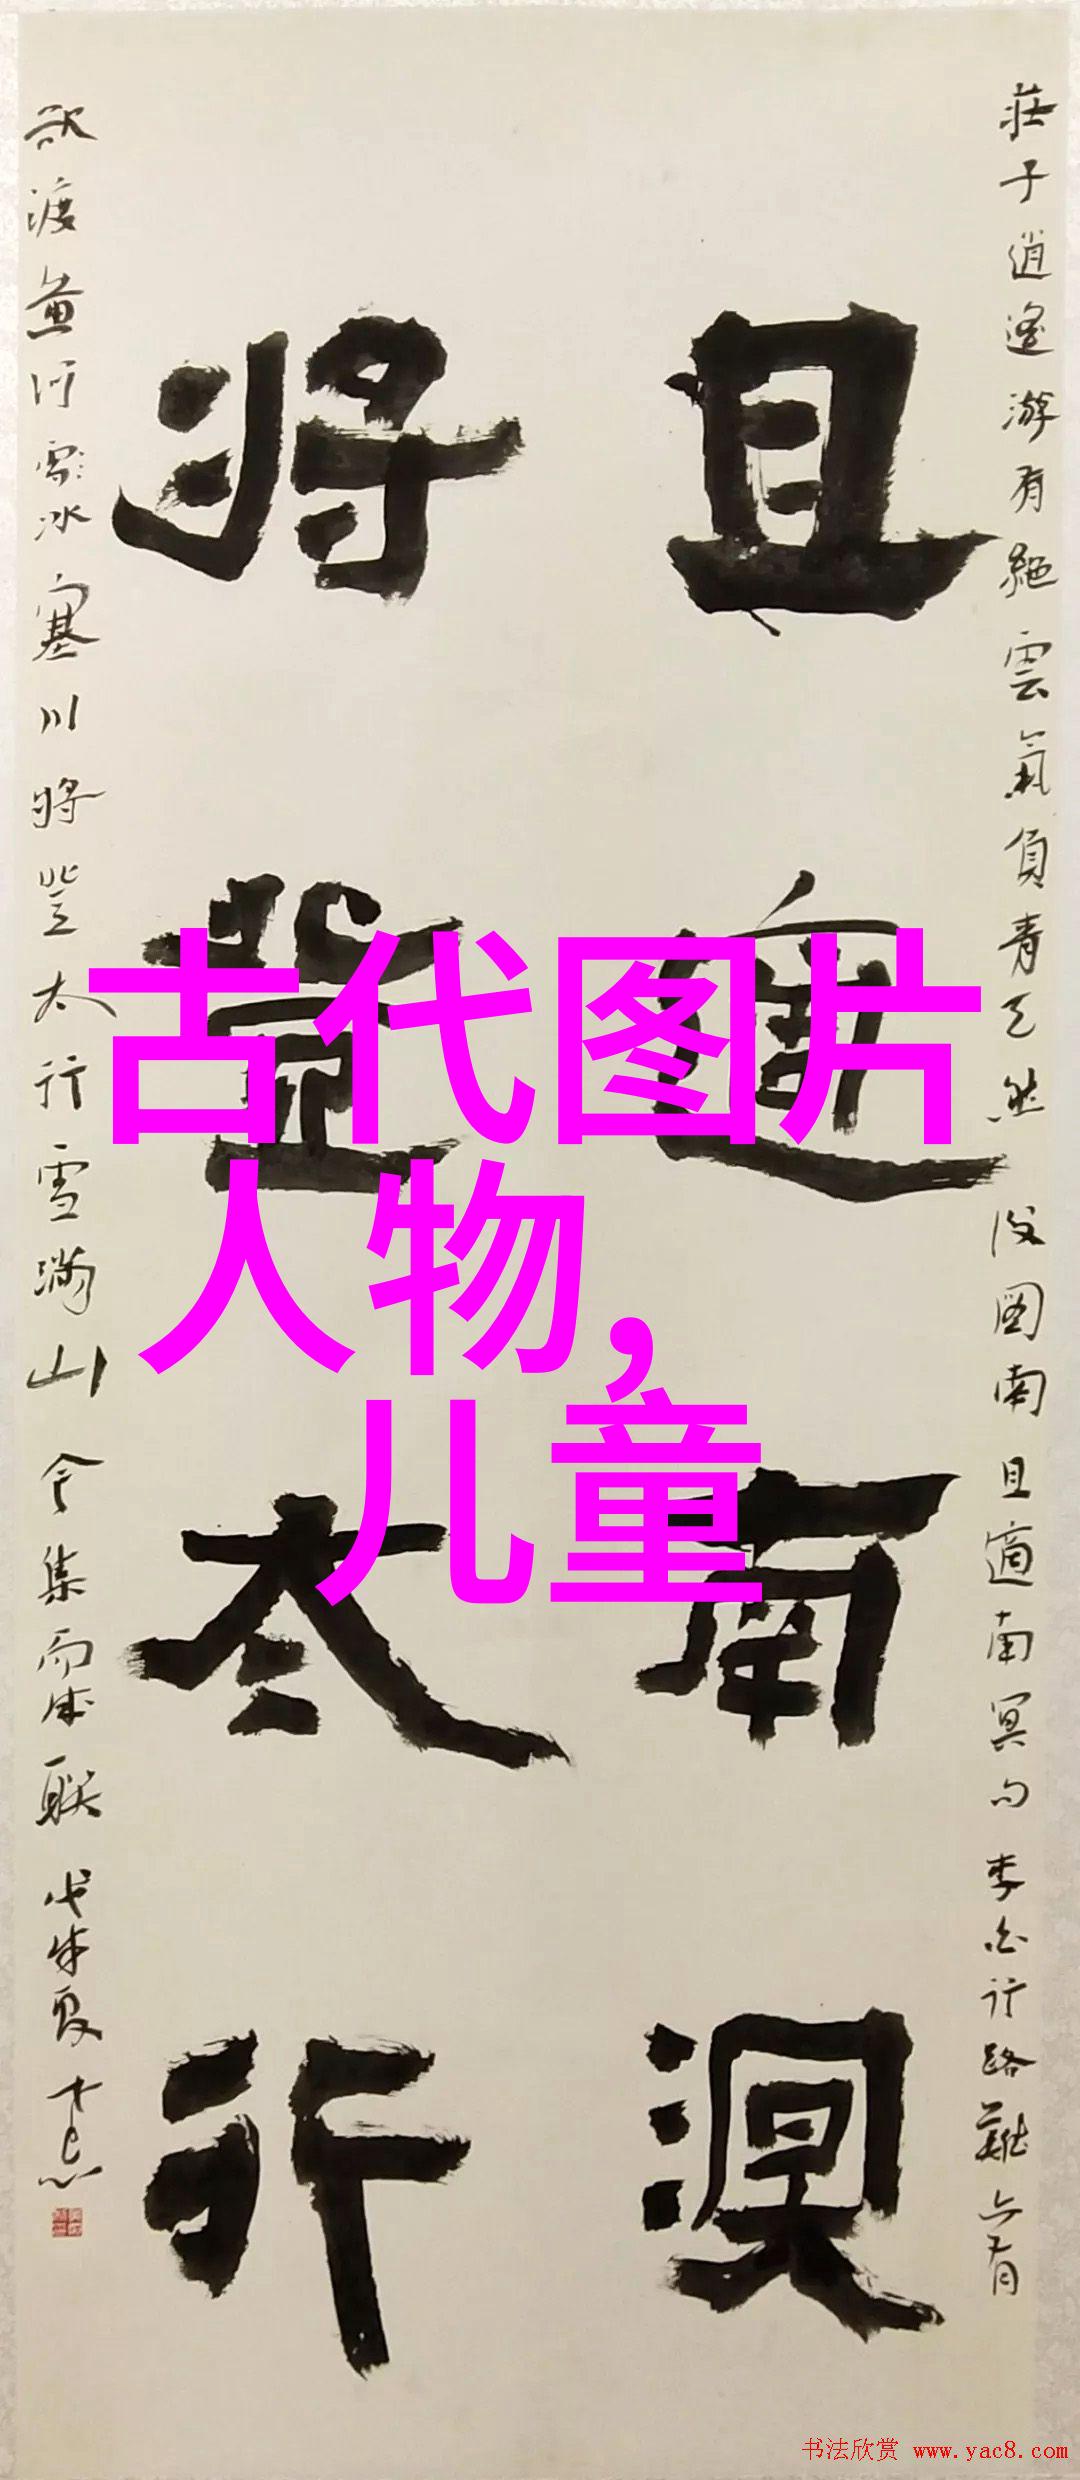 莊子逍遙游有絕雲氣負青天然後圖南且適南冥句李白行路難亦有
且適南溟
将登太行
欲渡黃河雪冰塞川将登太行雪滿山今集而成联戊戌夏
古代图片
人物,
儿童
书法欣赏 www.yac8.com